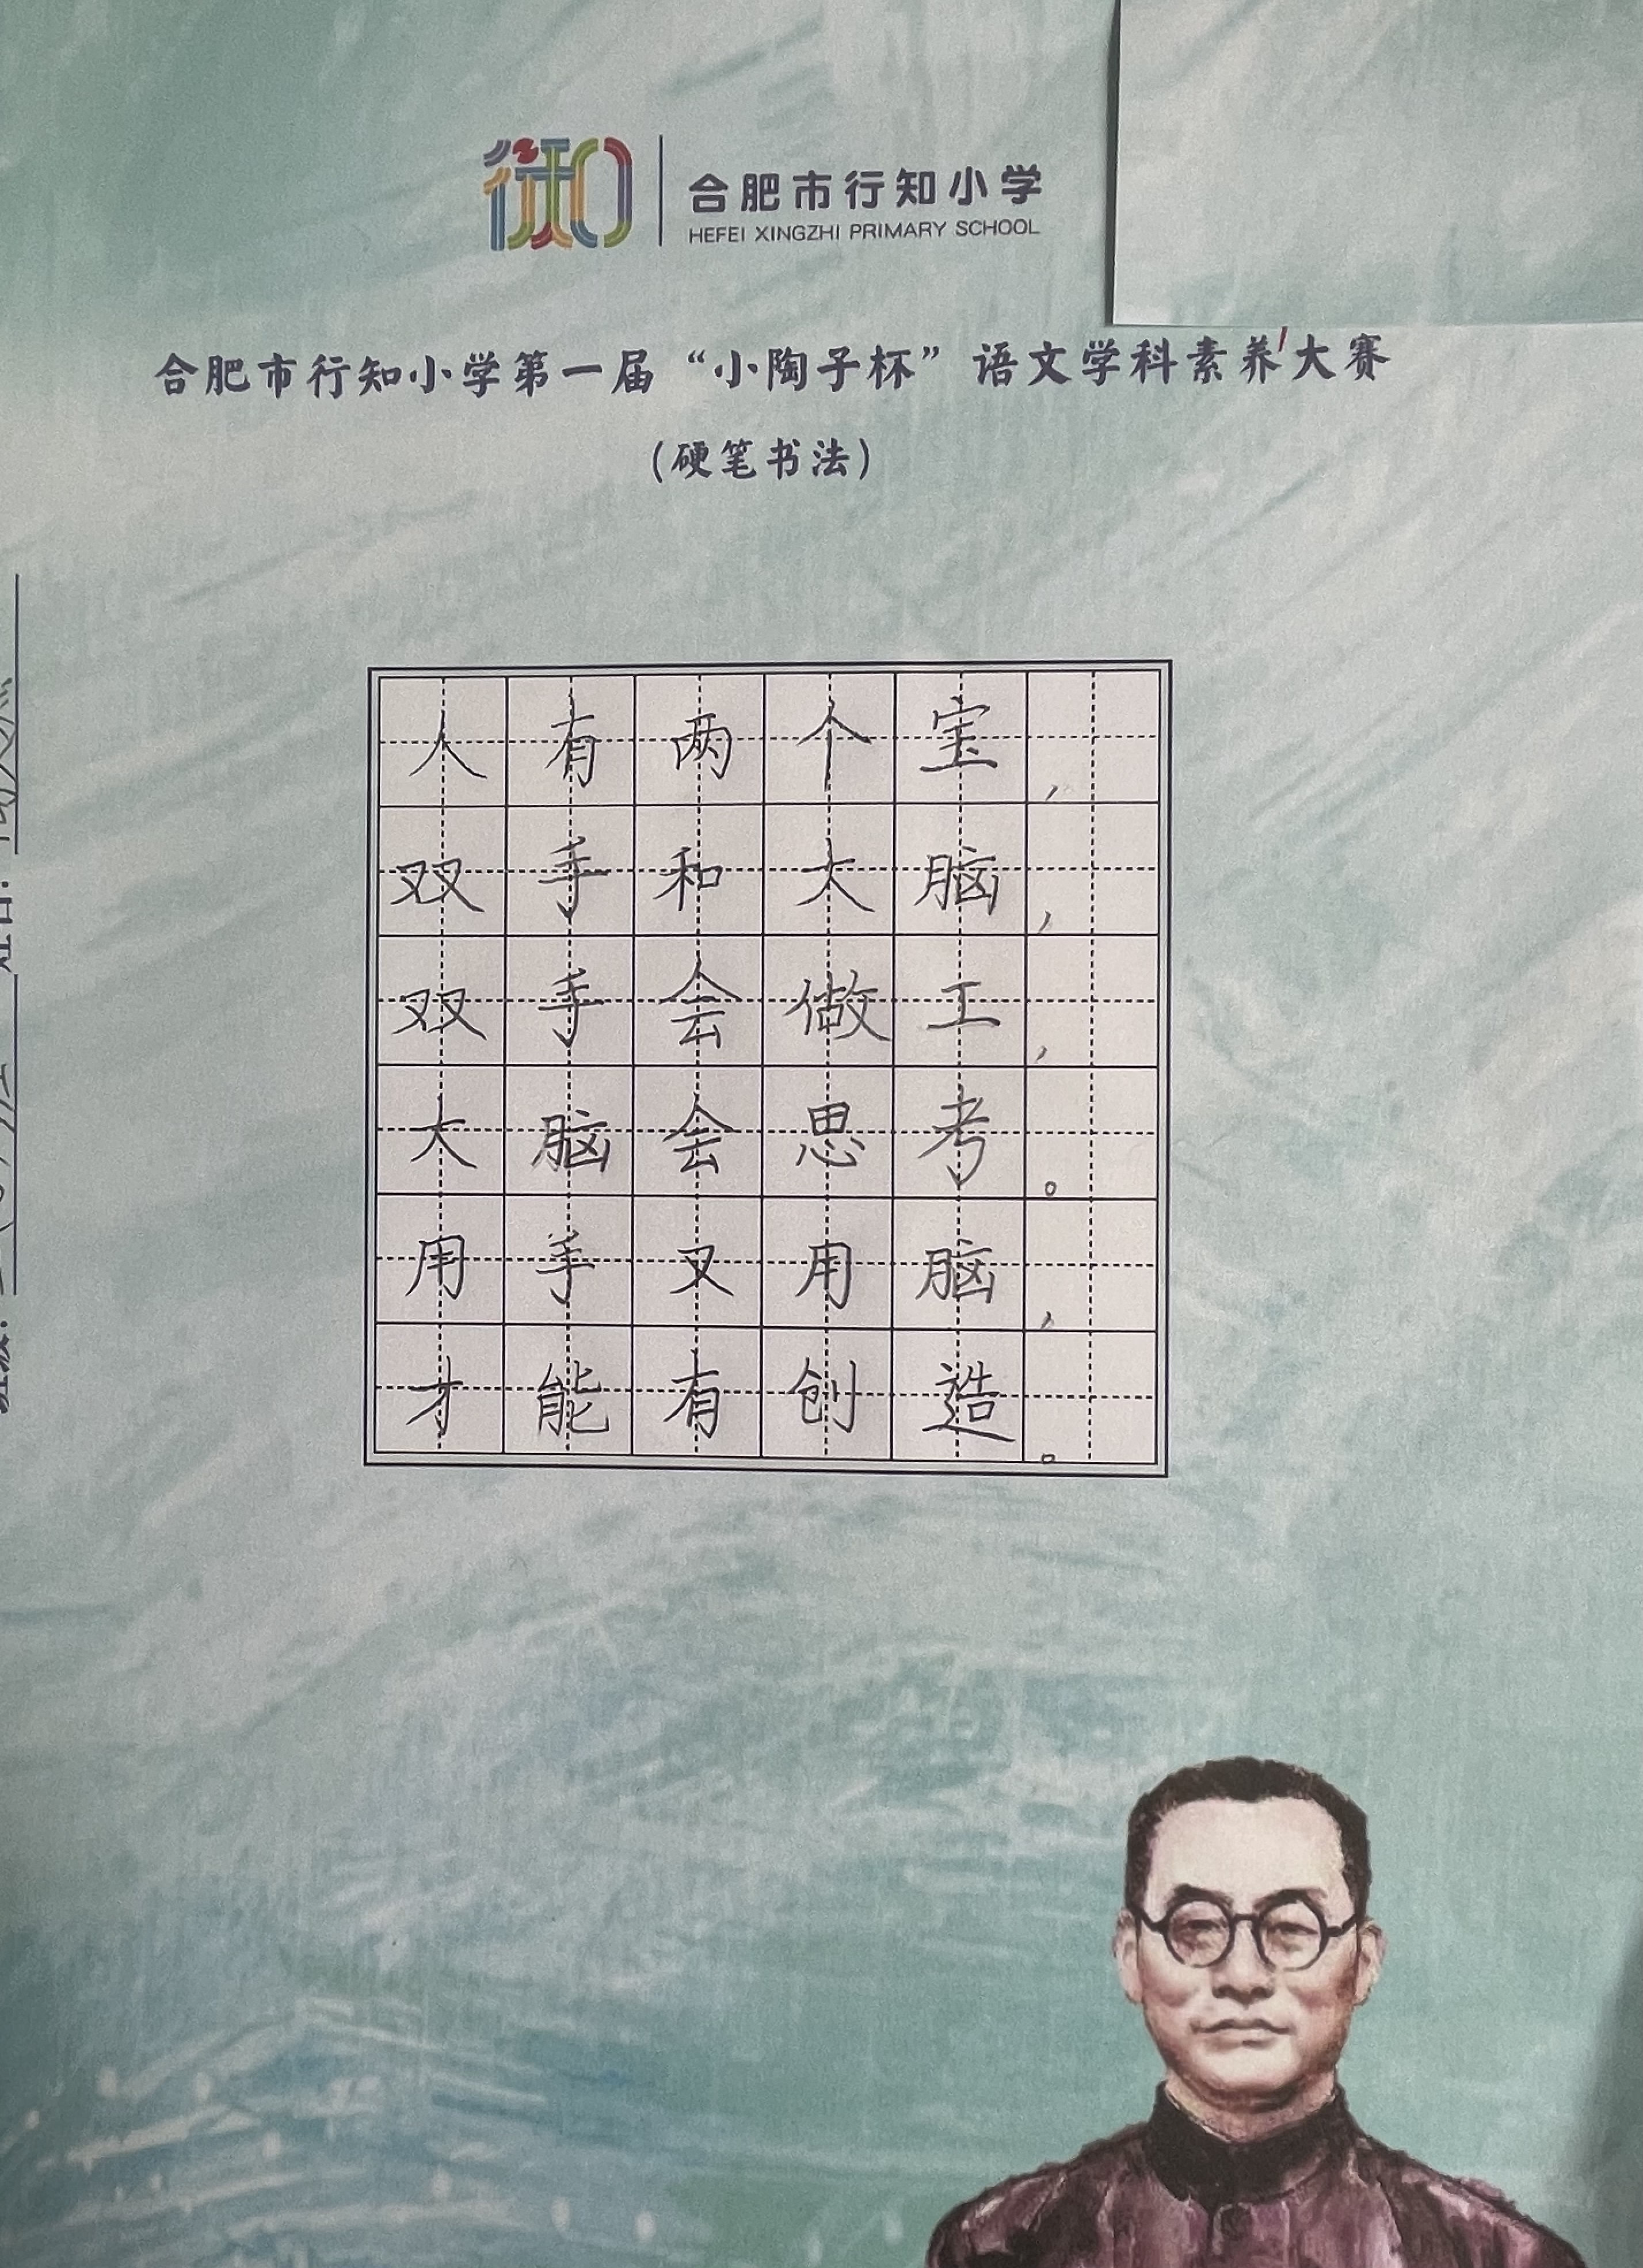 合肥市行知小学
HEFEI XINGZHI PRIMARY SCHOOL
合肥市行知小学第一届“小陶子杯”语文学科素养大赛
(硬笔书法)
人有两个宝,
双手和大脑,
双手会做工,
大脑会思考。
用手又用脑,
才能有创造。